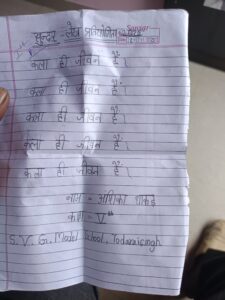 सुन्दर - लेख प्रतियोगिता
कला ही जीवन है।
कला ही जीवन है।
कला ही जीवन है।
कला ही जीवन है।
कला ही जीवन है।
नाम -
कक्षा - Vth
S.V. G. Model School, Todaraisingh